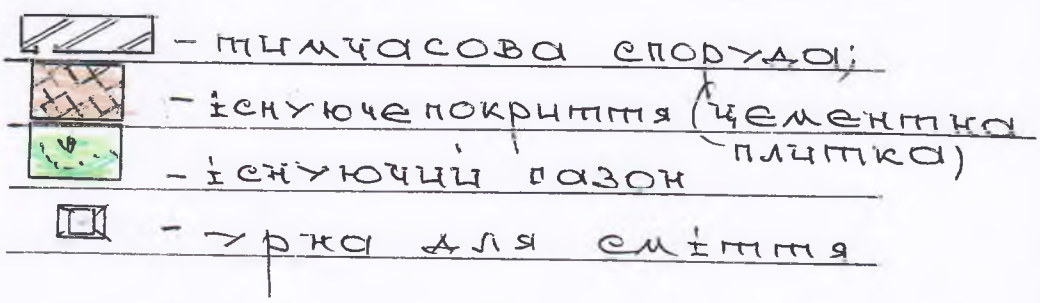 - тимчасова споруда;
- існуюче покриття (цементна
плитка)
- існуючий газон
- урна для сміття